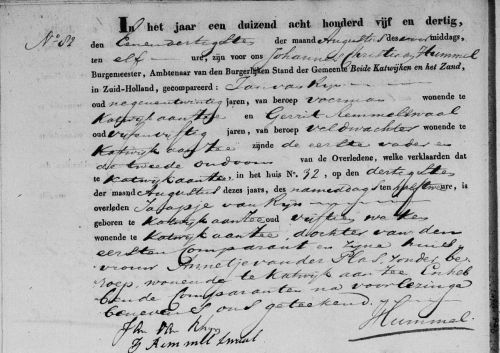 No 82
In het jaar een duizend acht honderd vijf en dertig,
den Eenendertigsten der maand Augustus des voormiddags,
ten elf ure, zijn voor ons Johannes Christiaan Hummel
Burgemeester, Ambtenaar van den Burgerlijken Stand der Gemeente Beide Katwijken en het Zand,
in Zuid-Holland, gecompareerd: Jan van Rijn
oud negenentwintig jaren, van beroep voerman wonende te
Katwijk aan Zee en Gerrit Remmelswaal
oud vijfenvijftig jaren, van beroep veldwachter wonende te
Katwijk aan Zee zijnde de eerste vader en
de tweede oudoom van de Overledene, welke verklaarden dat
te Katwijk aan Zee, in het huis No. 32, op den dertigsten
der maand Augustus dezes jaars, des namiddags ten ure, is
overleden Jaapje van Rijn
geboren te Katwijk aan Zee oud vijftien weken
wonende te Katwijk aan Zee, dochter van den
eersten Comparant en zijne huis
vrouw Annetje van der Plas, zonder be
roep, wonende te Katwijk aan Zee En heb
bende Comparanten na voorlezinge
benevens ons geteekend.
Jan van Rijn
G Remmelswaal
Hummel